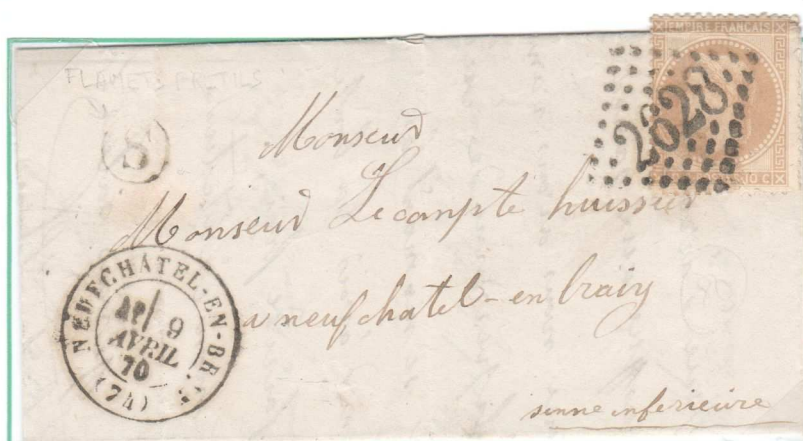 EMPIRE FRANÇAIS
10 C
2628
FLAMETS FRETILS
S
Monsieur
Monsieur Lecompte huissier
a neufchatel-en braiy
senne inferieure
NEUFCHATEL-EN-BRAY
9
AVRIL
70
(74)